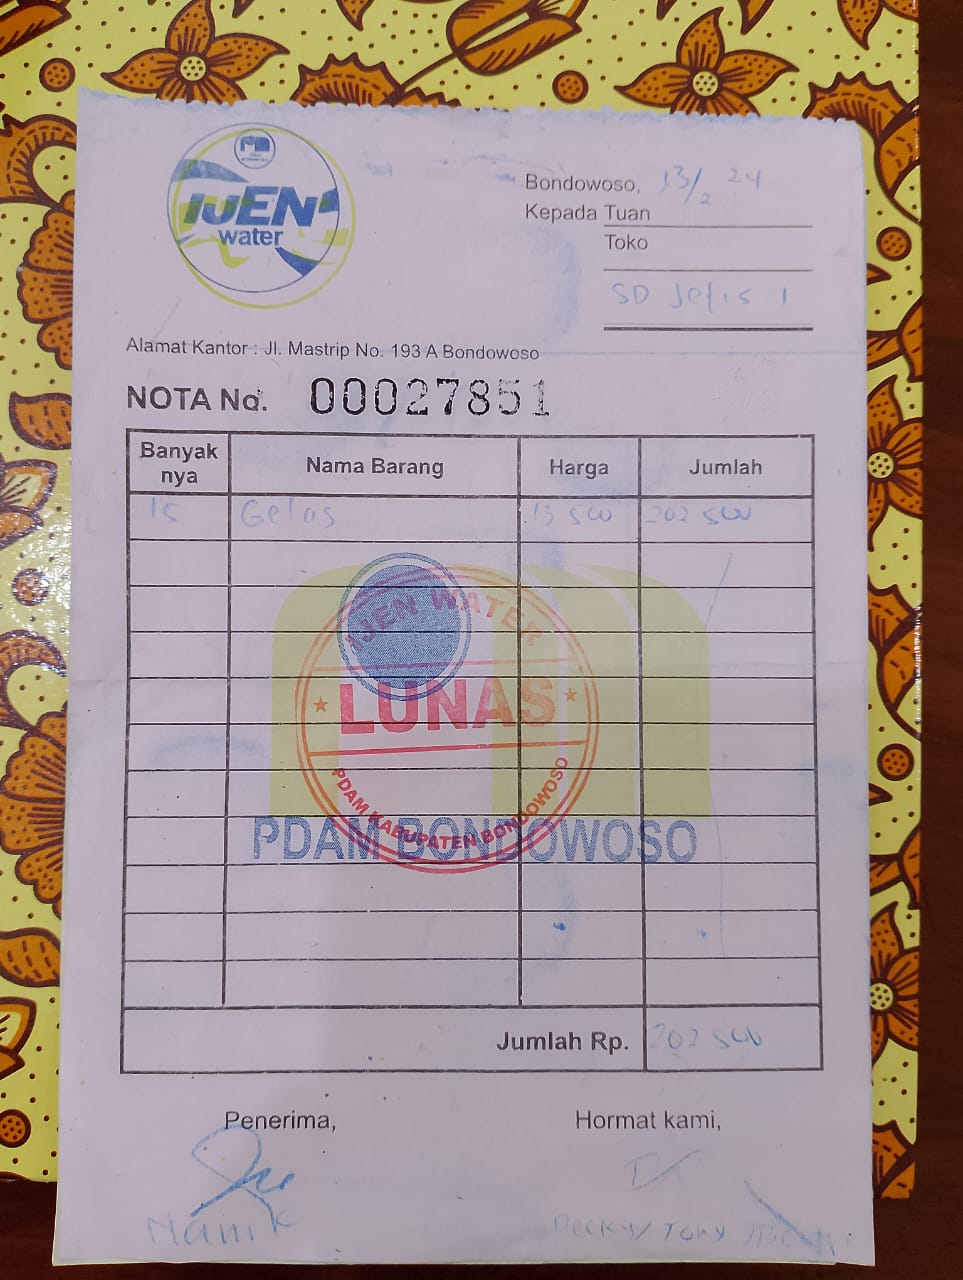 IJEN
water
Bondowoso, 13/2 24
Kepada Tuan
Toko
SD Jetis 1
Alamat Kantor : Jl. Mastrip No. 193 A Bondowoso
NOTA No. 00027851
Banyak nya Nama Barang Harga Jumlah
15 Gelas 13 500 202 500
IJEN WATER
LUNAS
PDAM KABUPATEN BONDOWOSO
PDAM BONDOWOSO
Jumlah Rp. 202 500
Penerima, Hormat kami,
Manik Decky/Tony